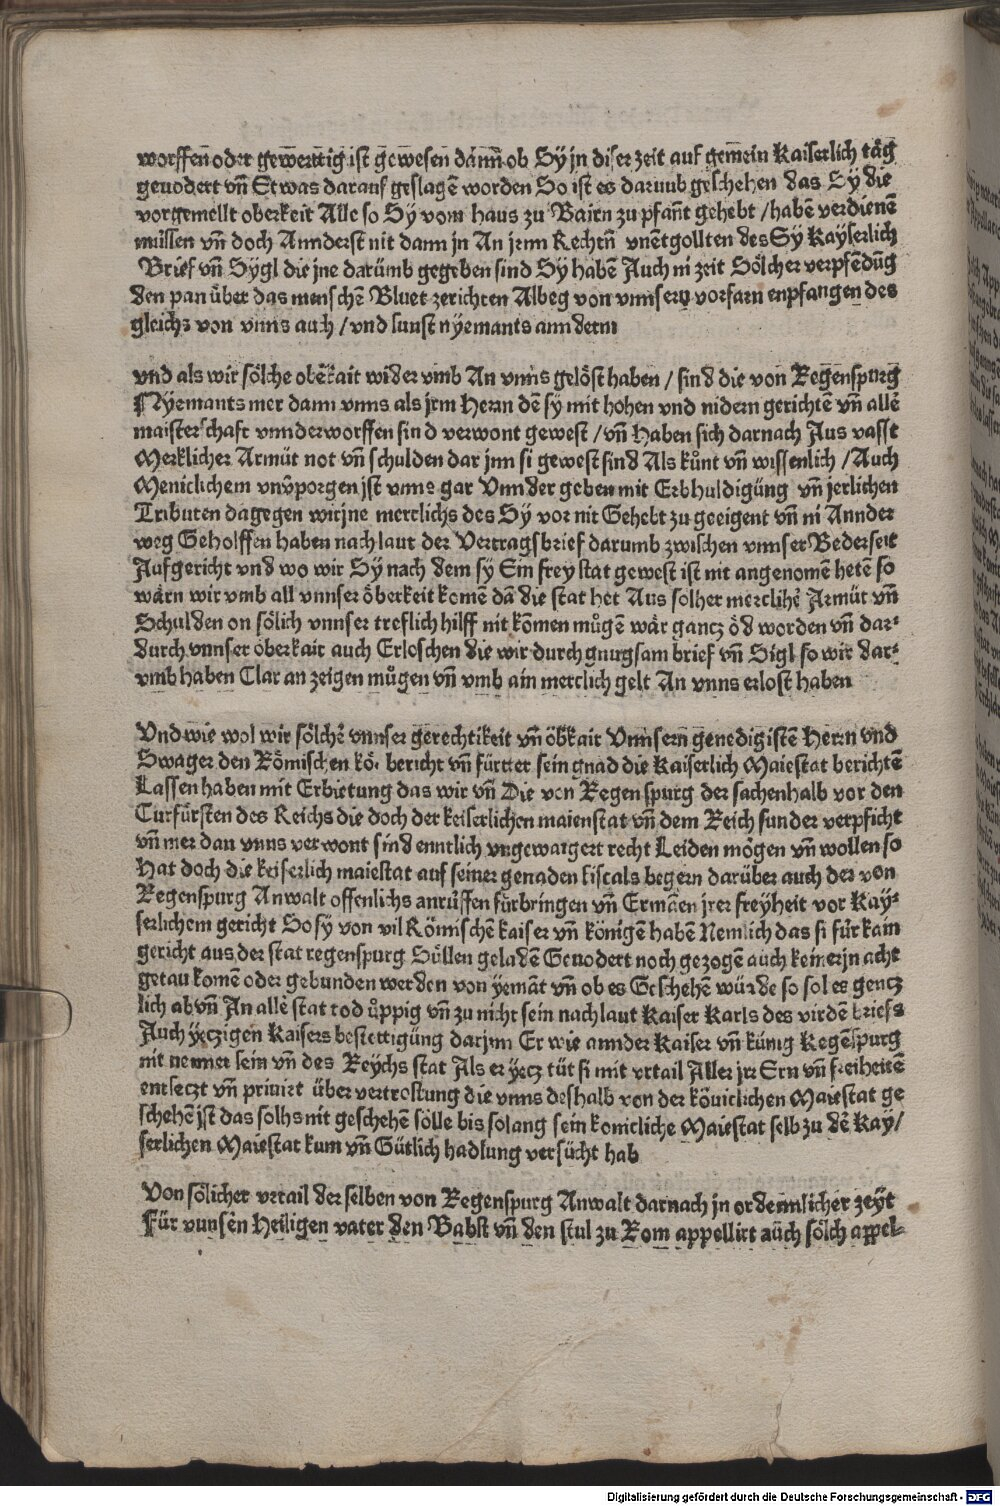 worffen oder gewerttig ist gewesen dann̄ ob Sÿ jn diser zeit auf gemein Kaiserlich täg
geuodert vn̄ Etwas darauf geslagē worden So ist es darumb geschehen das Sÿ die
vorgemellt oberkeit Alle so Sÿ vom haus zu Bairn zu pfann̄t gehebt / habē verdienē
müssen vn̄ doch Annderst nit dann jn An jrnn Rechtn̄ vnētgollten des Sÿ Kayserlich
Brief vn̄ Sÿgl die jne darümb gegeben sind Sÿ habē Auch ni zeit Sölcher verpfēdūg
den pan über das menschē Bluet zerichten Albeg von vnnsern vorfarn enpfangen des
gleichs von vnns auch / vnd sunst nÿemants anndernn
vnd als wir sölche obēkait wider vmb An vnns gelöst haben / sind die von Regenspurg
Nÿemants mer dann vnns als jrm Herrn dē sÿ mit hohen vnd nidern gerichtē vn̄ allē
maisterschaft vnnderworffen sind verwont gewest / vn̄ Haben sich darnach Aus vasst
Mercklicher Armüt not vn̄ schulden dar jnn si gewest sind Als kůnt vn̄ wissenlich / Auch
Meniclichem vnv̊porgen jst vnns gar Vnnder geben mit Erbhuldigūg vn̄ jerlichen
Tributen dagegen wir jne mercklichs des Sÿ vor nit Gehebt zu geeigent vn̄ ni Annder
weg Geholffen haben nach laut der Vertragsbrief darumb zwischen vnnser Bederseit
Aufgericht vnd wo wir Sÿ nach dem sÿ Ein frey stat gewest ist nit angenomē hetē so
wärn wir vmb all vnnser öberkeit komē dā die stat het Aus solher merclihē Armüt vn̄
Schulden on sölich vnnser treflich hilff nit komen můgē wär gancz öd worden vn̄ dar⸗
durch vnnser öberkait auch Erloschen die wir durch gnugsam brief vn̄ Sigl so wir dar⸗
vmb haben Clar an zeigen mügen vn̄ vmb ain mercklich gelt An vnns erlost haben
Vnd wie wol wir sölchē vnnser gerechtikeit vn̄ öbkait Vnnsern genedigistē Herrn vnd
Swager den Römischen kö. bericht vn̄ fürtter sein gnad die Kaiserlich Maiestat berichtē
Lassen haben mit Erbietung das wir vn̄ Die von Regenspurg der sachenhalb vor den
Curfürsten des Reichs die doch der keiserlichen maienstat vn̄ dem Reich sunder verpflicht
vn̄ mer dan vnns verwont sind enntlich vngewaigert recht Leiden mögen vn̄ wollen so
Hat doch die keiserlich maiestat auf seiner genaden fiscals begern darüber auch der von
Regenspurg Anwalt offenlichs anrüffen fürbringen vn̄ Ermanen jrer freÿheit vor Kay⸗
serlichem gericht So sÿ von vil Römischē kaiser vn̄ königē haben Nemlich das si für kain
gericht aus der stat regenspurg Söllen geladē Geuodert noch gezogē auch keiner jn acht
getan komē oder gebunden werden von yemāt vn̄ ob es Geschehē würde so sol es gencz
lich ab vn̄ An allē stat tod ůppig vn̄ zu nicht sein nach laut Kaiser Karls des virdē briefs
Auch ÿeczigen Kaisers bestettigūg darjnn Er wie annder Kaiser vn̄ künig Regēspurg
nit nennet sein vn̄ des Reÿchs stat Als er ÿecz tüt si mit vrtail Aller jrer Ern vn̄ freiheitē
entseczt vn̄ priuirt über vertrostung die vnns deshalb von der köniclichen Maiestat ge
schehē jst das solhs nit geschehen sölle bis solang sein konicliche Maiestat selb zu dē Kay/
serlichen Maiestat kum vn̄ Gütlich hadlung versücht hab
Von sölicher vrtail der selben von Regenspurg Anwalt darnach jn ordennlicher zeÿt
Für vnnsēn Heiligen vater den Babst vn̄ den stul zu Rom appellirt aüch sölch appel⸗
Digitalisierung gefördert durch die Deutsche Forschungsgemeinschaft - DFG